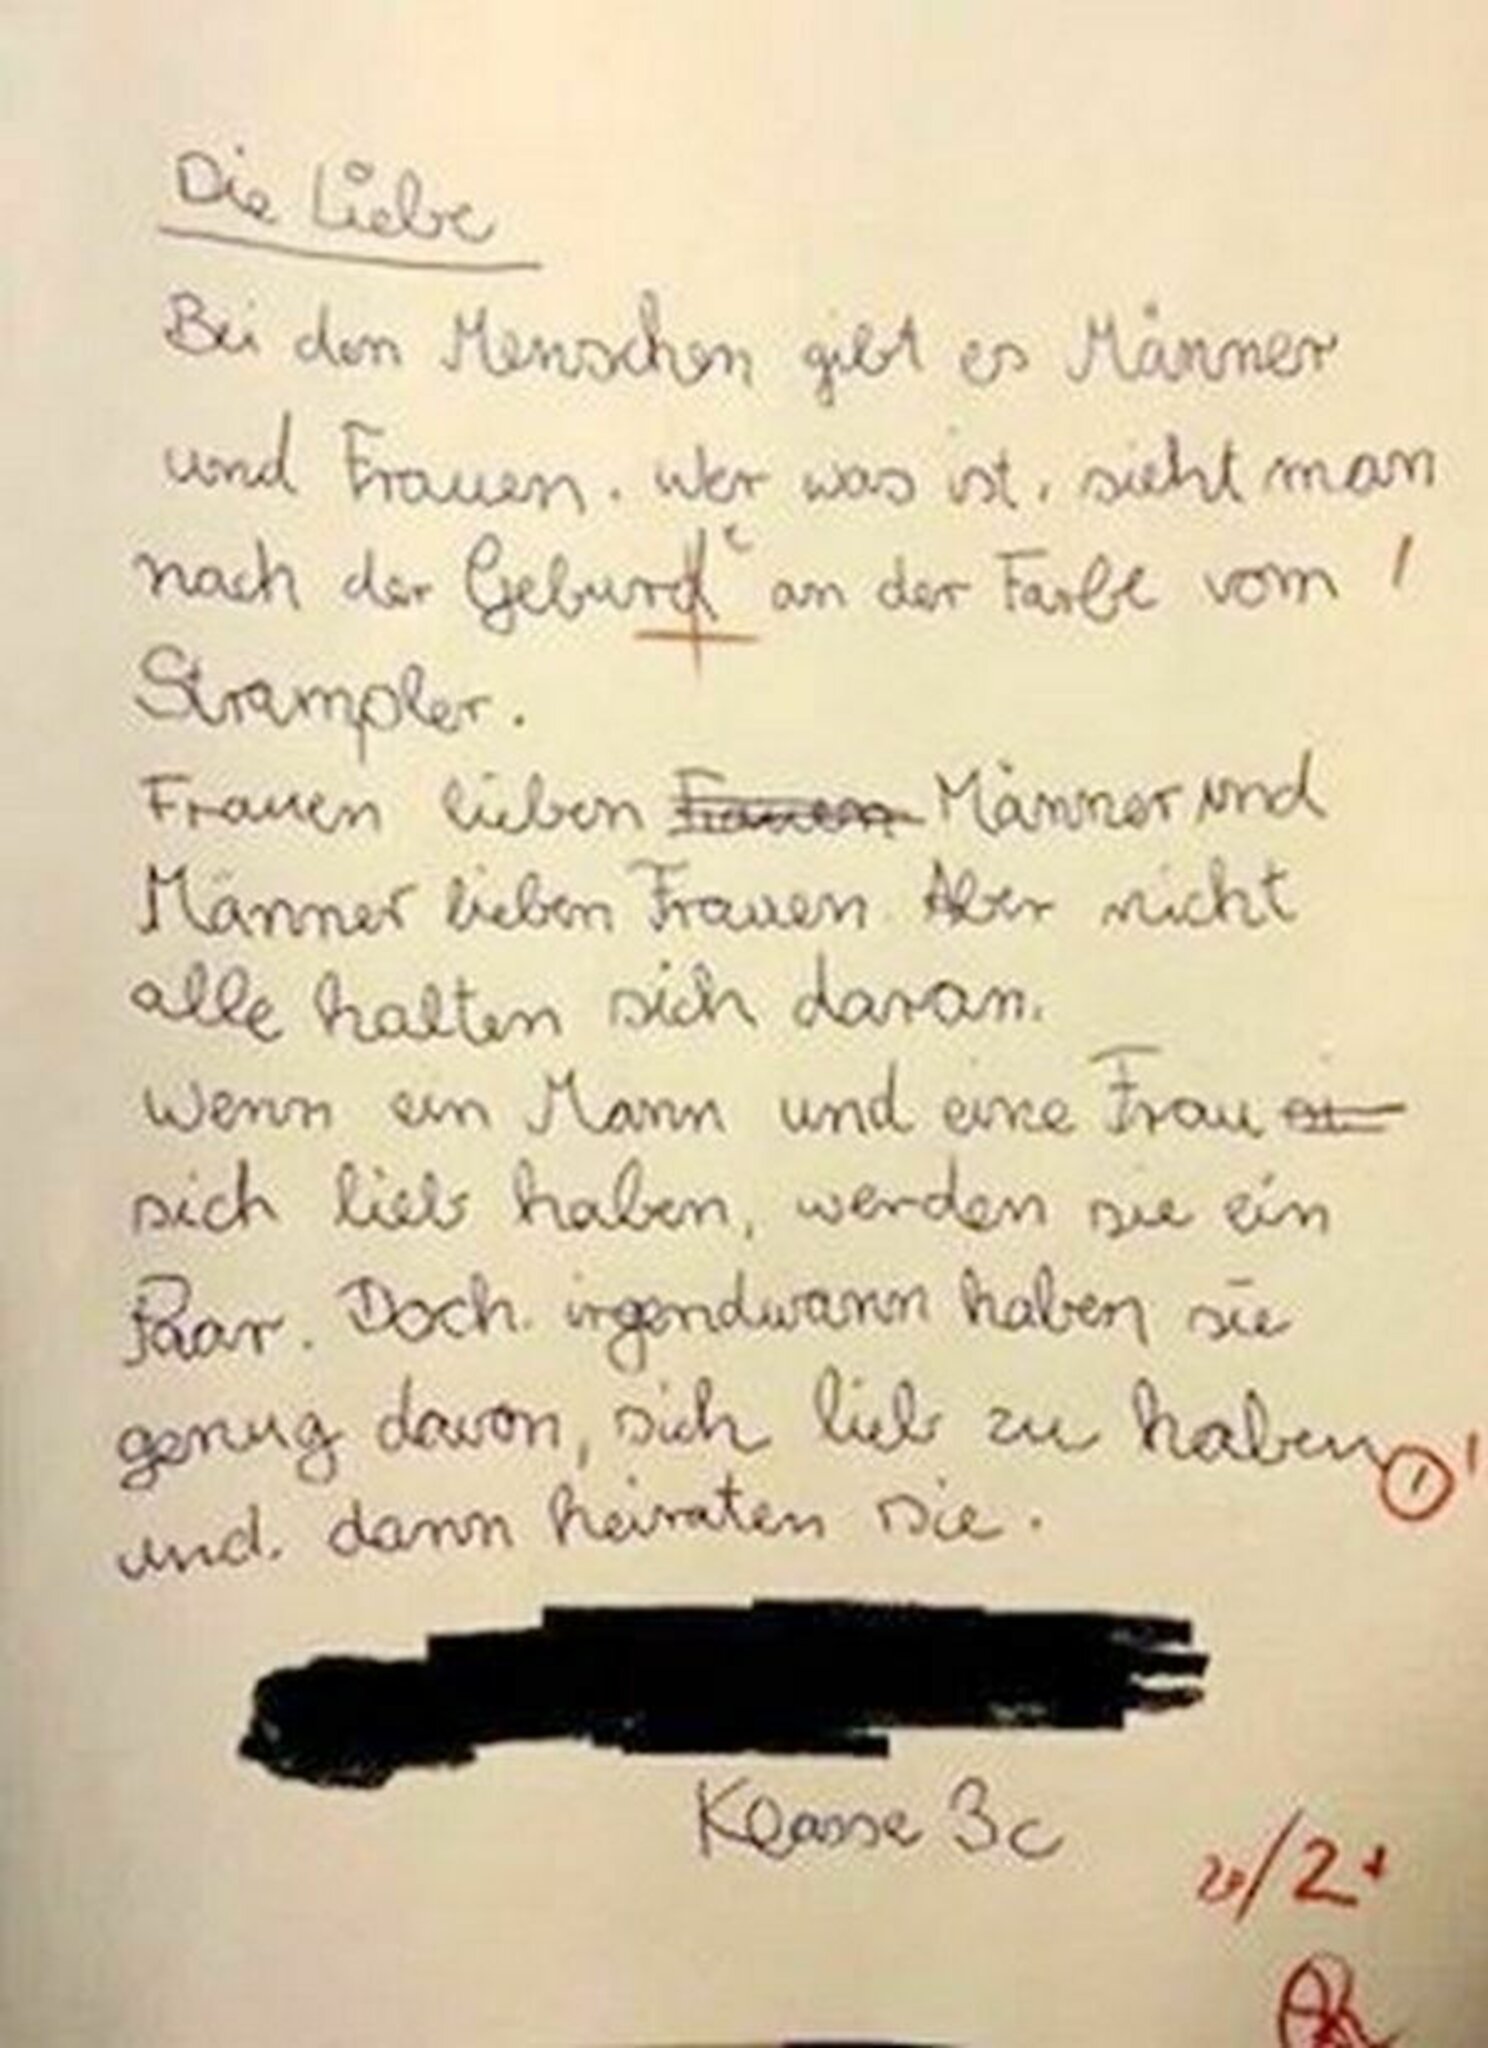 Die Liebe
Bei den Menschen gibt es Männer
und Frauen. Wer was ist, sieht man
nach der Geburd t an der Farbe vom
Strampler.
Frauen lieben Frauen Männer und
Männer lieben Frauen. Aber nicht
alle halten sich daran.
Wenn ein Mann und eine Frau
sich lieb haben, werden sie ein
Paar. Doch irgendwann haben sie
genug davon, sich lieb zu haben,
und dann heiraten sie.
Klasse 3c
/2+